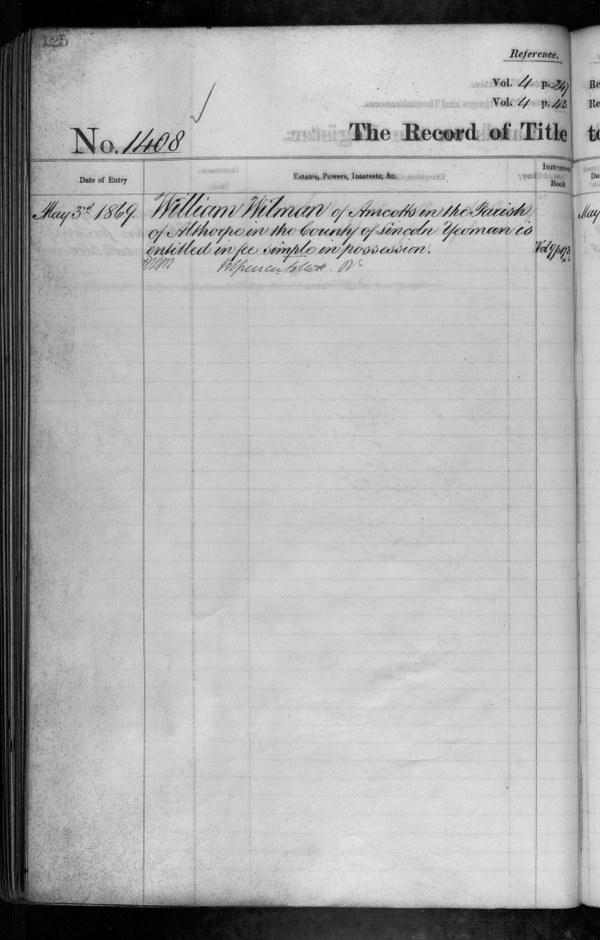 125
Reference.
Vol. 4 p. 247
Vol. 4 p. 43
No. 1408
The Record of Title to
Date of Entry
Estates, Powers, Interests, &c.
Instrument Book
May 3rd 1869.
William Wilman of Amcotts in the Parish
of Althorpe in the County of Lincoln Yeoman is
entitled in fee simple in possession.
Vol 9 p
May